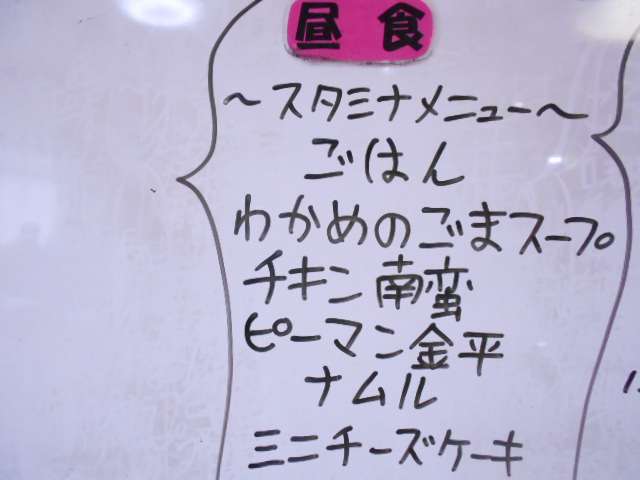 昼食
～スタミナメニュー～
ごはん
わかめのごまスープ
チキン南蛮
ピーマン金平
ナムル
ミニチーズケーキ